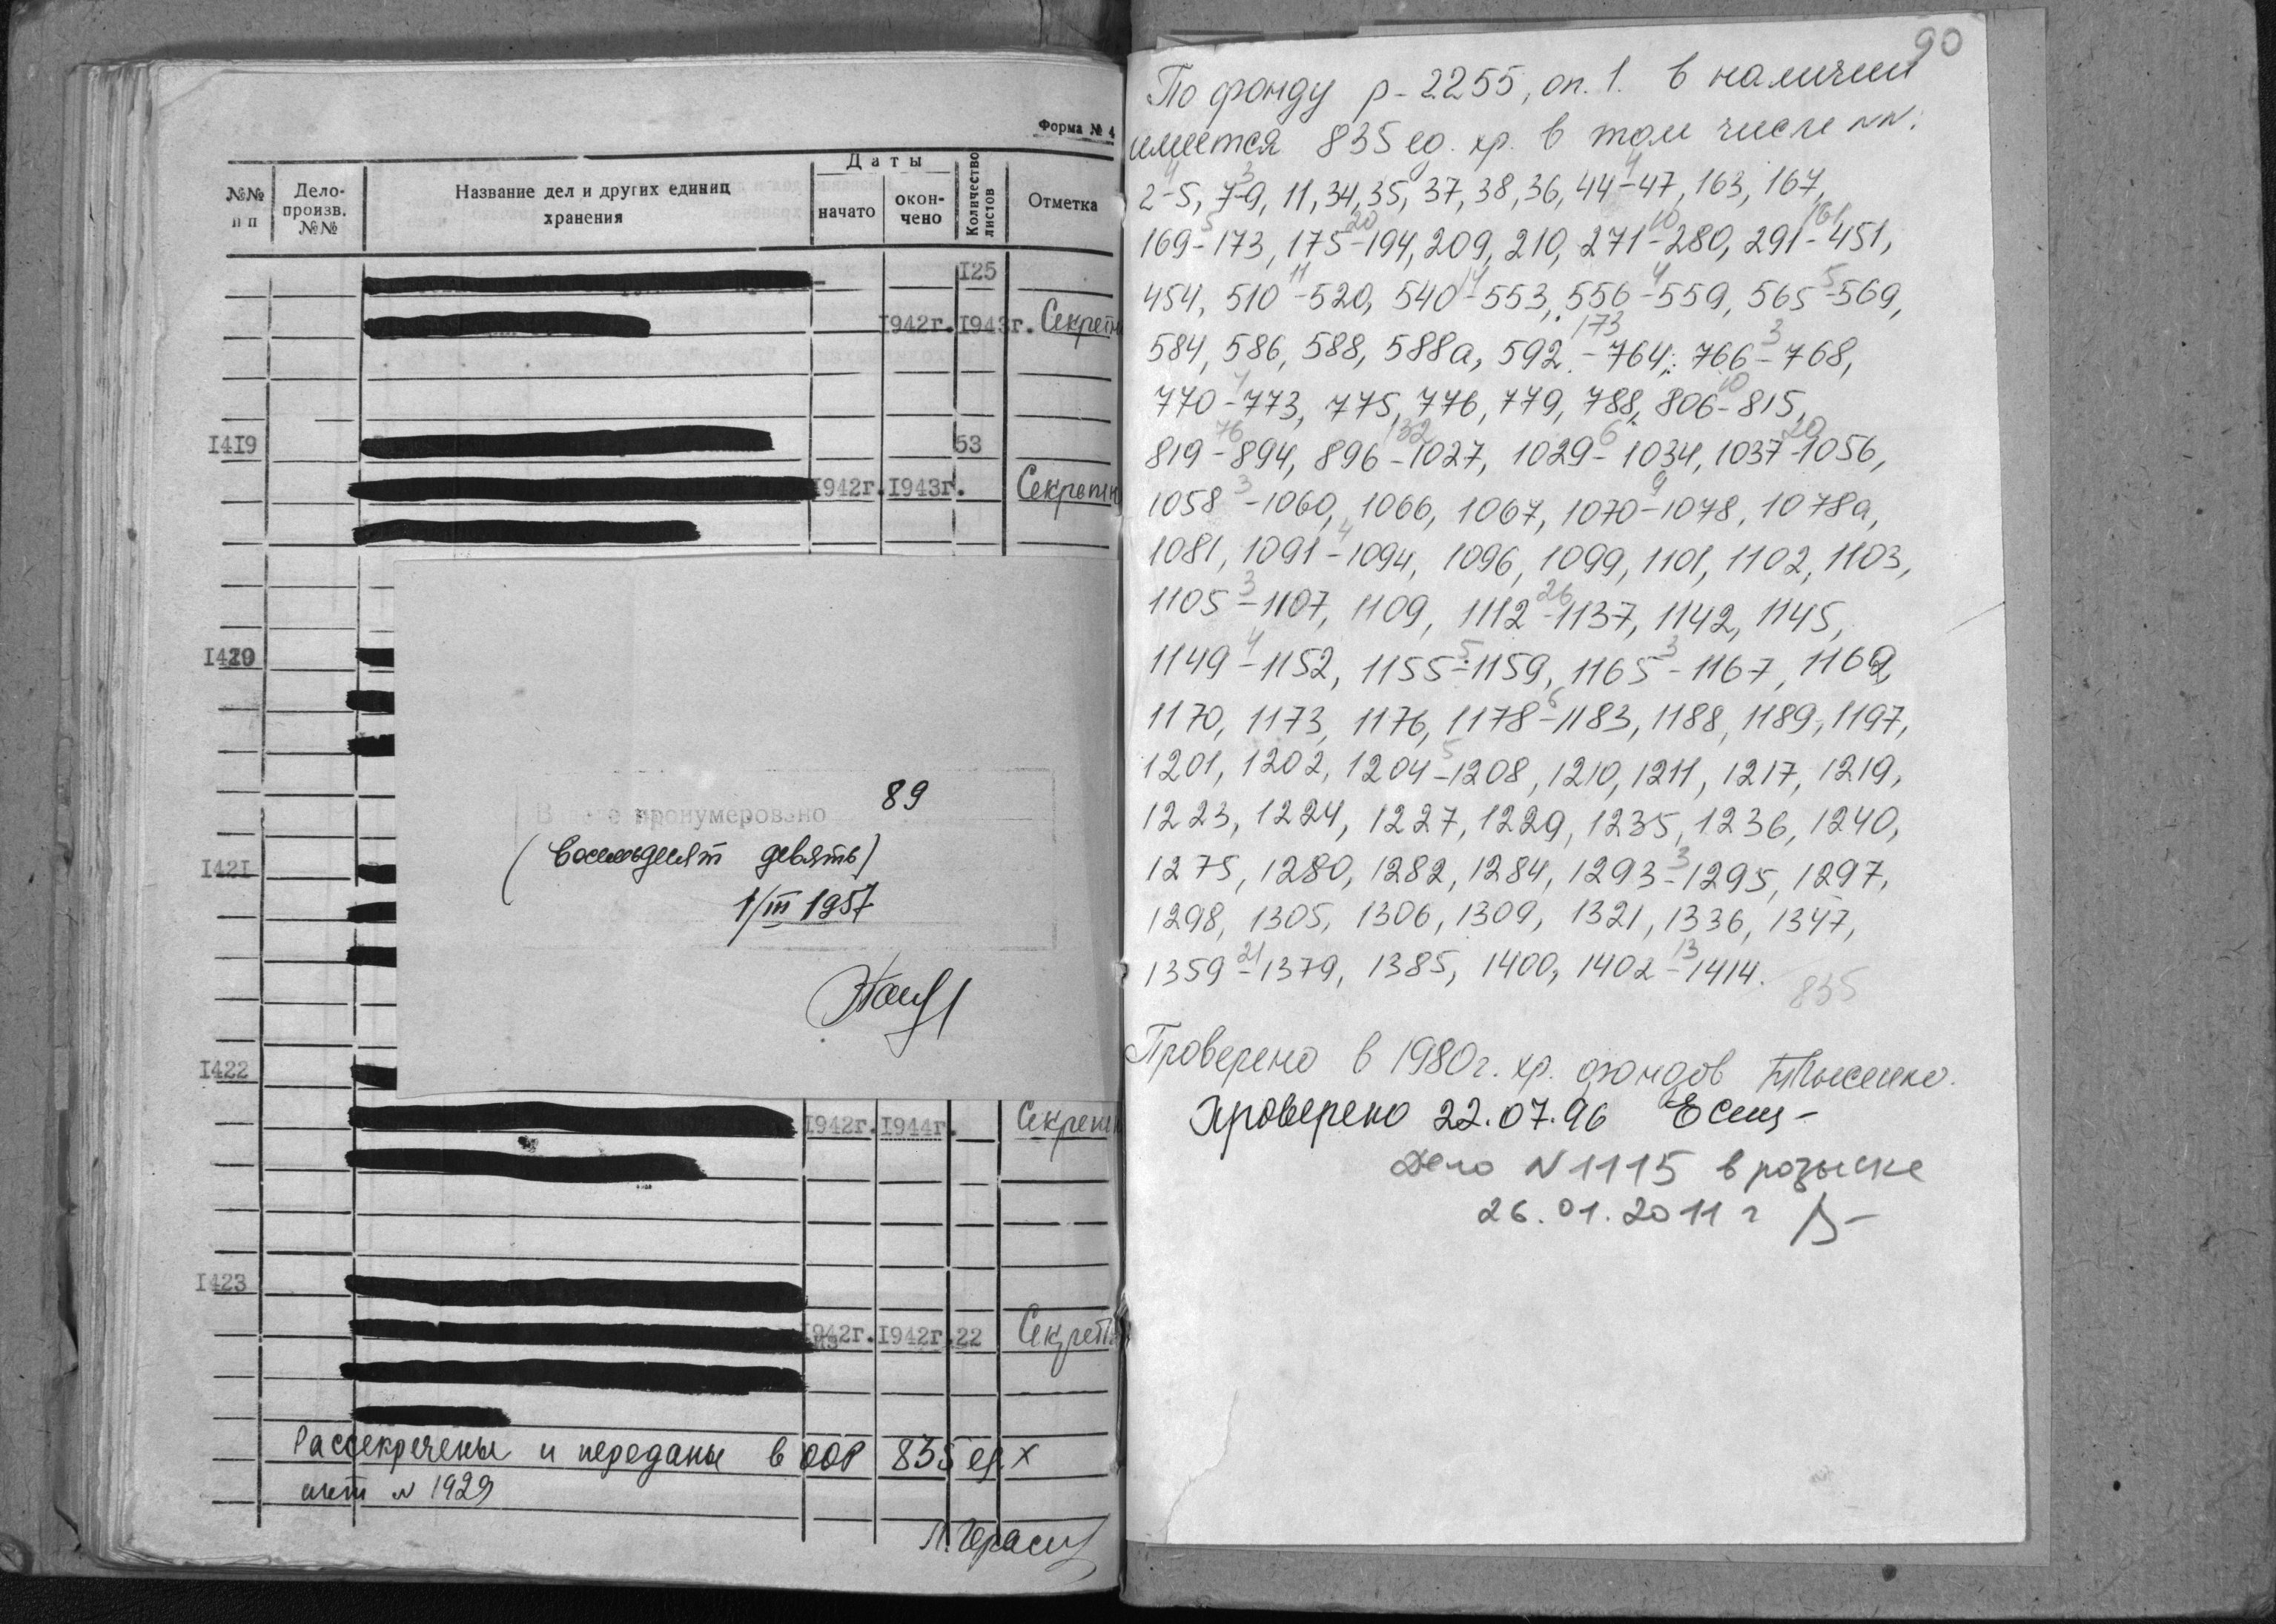 Форма № 4
№№ п п
Дело-произв. №№
Название дел и других единиц хранения
Даты
начато
окон-чено
Количество листов
Отметка
125
1942г. 1943г. Секретн
1419 53
1942г. 1943г. Секретн
1420
1421
1422
1942г. 1944г. Секретн
1423
1942г. 1942г. 22 Секретн
Рассекречены и переданы в ООР 835 ед. х
акт № 1929
пронумеровано 89
(восемьдесят девять)
1/III 1957
90
По фонду р-2255, оп. 1. в наличии
имеется 835 ед. хр. в том числе №№:
2-5, 7-9, 11, 34, 35, 37, 38, 36, 44-47, 163, 167,
169-173, 175-194, 209, 210, 271-280, 291-451,
454, 510-520, 540-553, 556-559, 565-569,
584, 586, 588, 588а, 592-764, 766-768,
770-773, 775, 776, 779, 788, 806-815,
819-894, 896-1027, 1029-1034, 1037-1056,
1058-1060, 1066, 1067, 1070-1078, 1078а,
1081, 1091-1094, 1096, 1099, 1101, 1102, 1103,
1105-1107, 1109, 1112-1137, 1142, 1145,
1149-1152, 1155-1159, 1165-1167, 1169,
1170, 1173, 1176, 1178-1183, 1188, 1189, 1197,
1201, 1202, 1204-1208, 1210, 1211, 1217, 1219,
1223, 1224, 1227, 1229, 1235, 1236, 1240,
1275, 1280, 1282, 1284, 1293-1295, 1297,
1298, 1305, 1306, 1309, 1321, 1336, 1347,
1359-1379, 1385, 1400, 1402-1414.
835
Проверено в 1980г. хр. фондов
Проверено 22.07.96
Дело № 1115 в розыске
26.01.2011 г